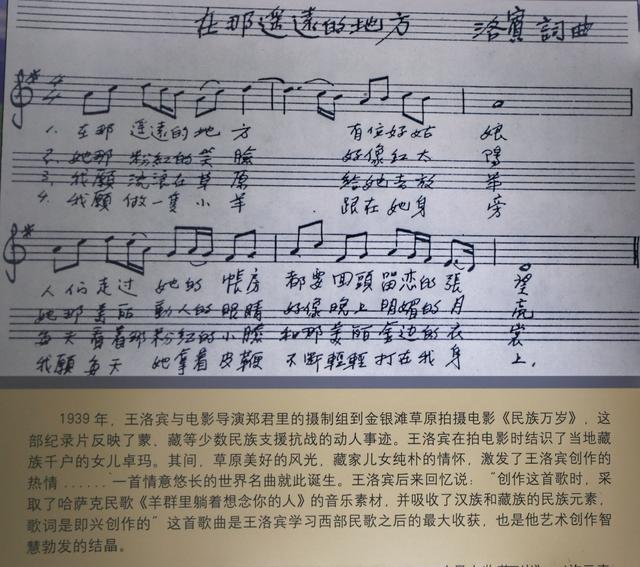 在那遥遠的地方 洛賓詞曲
1. 在那 遥遠的地 方 有位好姑 娘
2. 她那 粉紅的笑 臉 好像紅太 陽
3. 我願 流浪在草 原 給她去放 羊
4. 我願 做一隻小 羊 跟在她身 旁
人们走过 她的 帳房 都要回頭留恋的張 望
她那美丽 動人的眼睛 好像晚上明媚的月 亮
每天看着那粉红的小臉 和那美丽金边的衣 裳
我願每天 她拿着皮鞭 不断輕輕打在我身 上.
1939 年,王洛宾与电影导演郑君里的摄制组到金银滩草原拍摄电影《民族万岁》,这
部纪录片反映了蒙、藏等少数民族支援抗战的动人事迹。王洛宾在拍电影时结识了当地藏
族千户的女儿卓玛。其间,草原美好的风光,藏家儿女纯朴的情怀,激发了王洛宾创作的
热情 ...... 一首情意悠长的世界名曲就此诞生。王洛宾后来回忆说:“创作这首歌时,采
取了哈萨克民歌《羊群里躺着想念你的人》的音乐素材,并吸收了汉族和藏族的民族元素,
歌词是即兴创作的”这首歌曲是王洛宾学习西部民歌之后的最大收获,也是他艺术创作智
慧勃发的结晶。